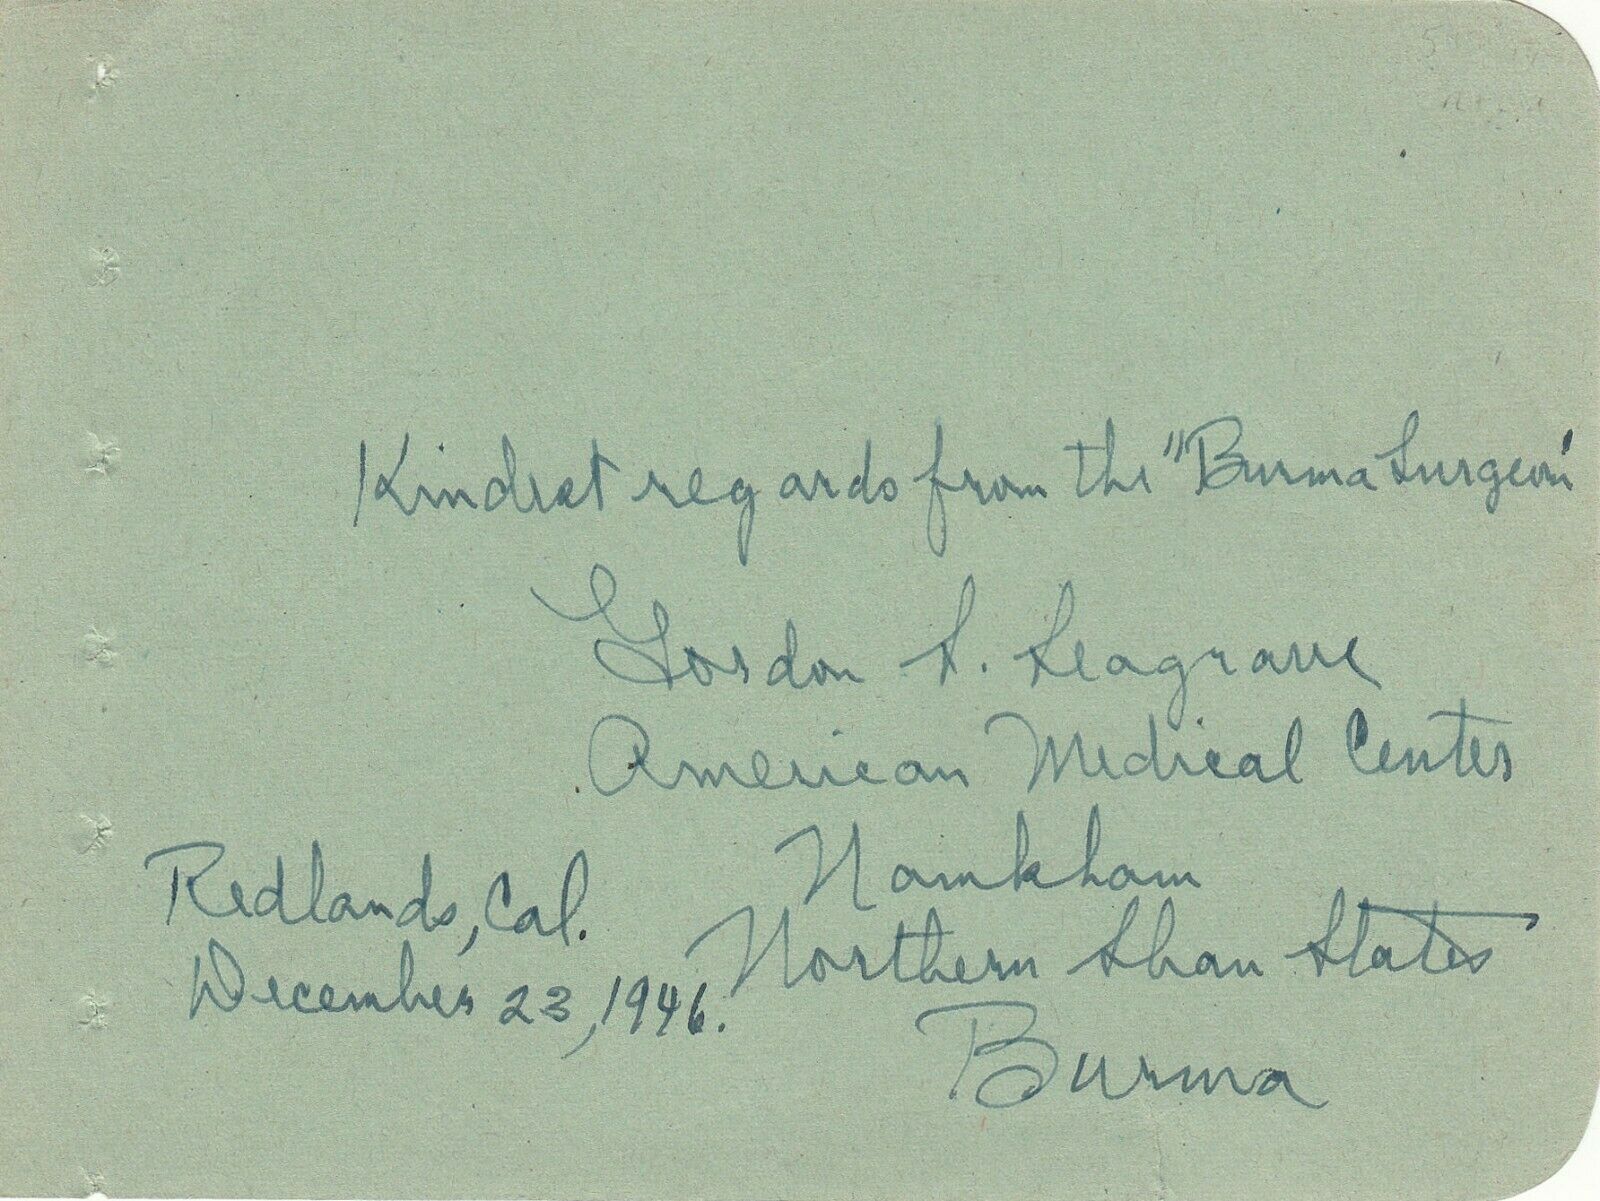 Kindest regards from the "Burma Surgeon"
Gordon S. Seagrave
American Medical Center
Namkham
Northern Shan States
Burma
Redlands, Cal.
December 23, 1946.